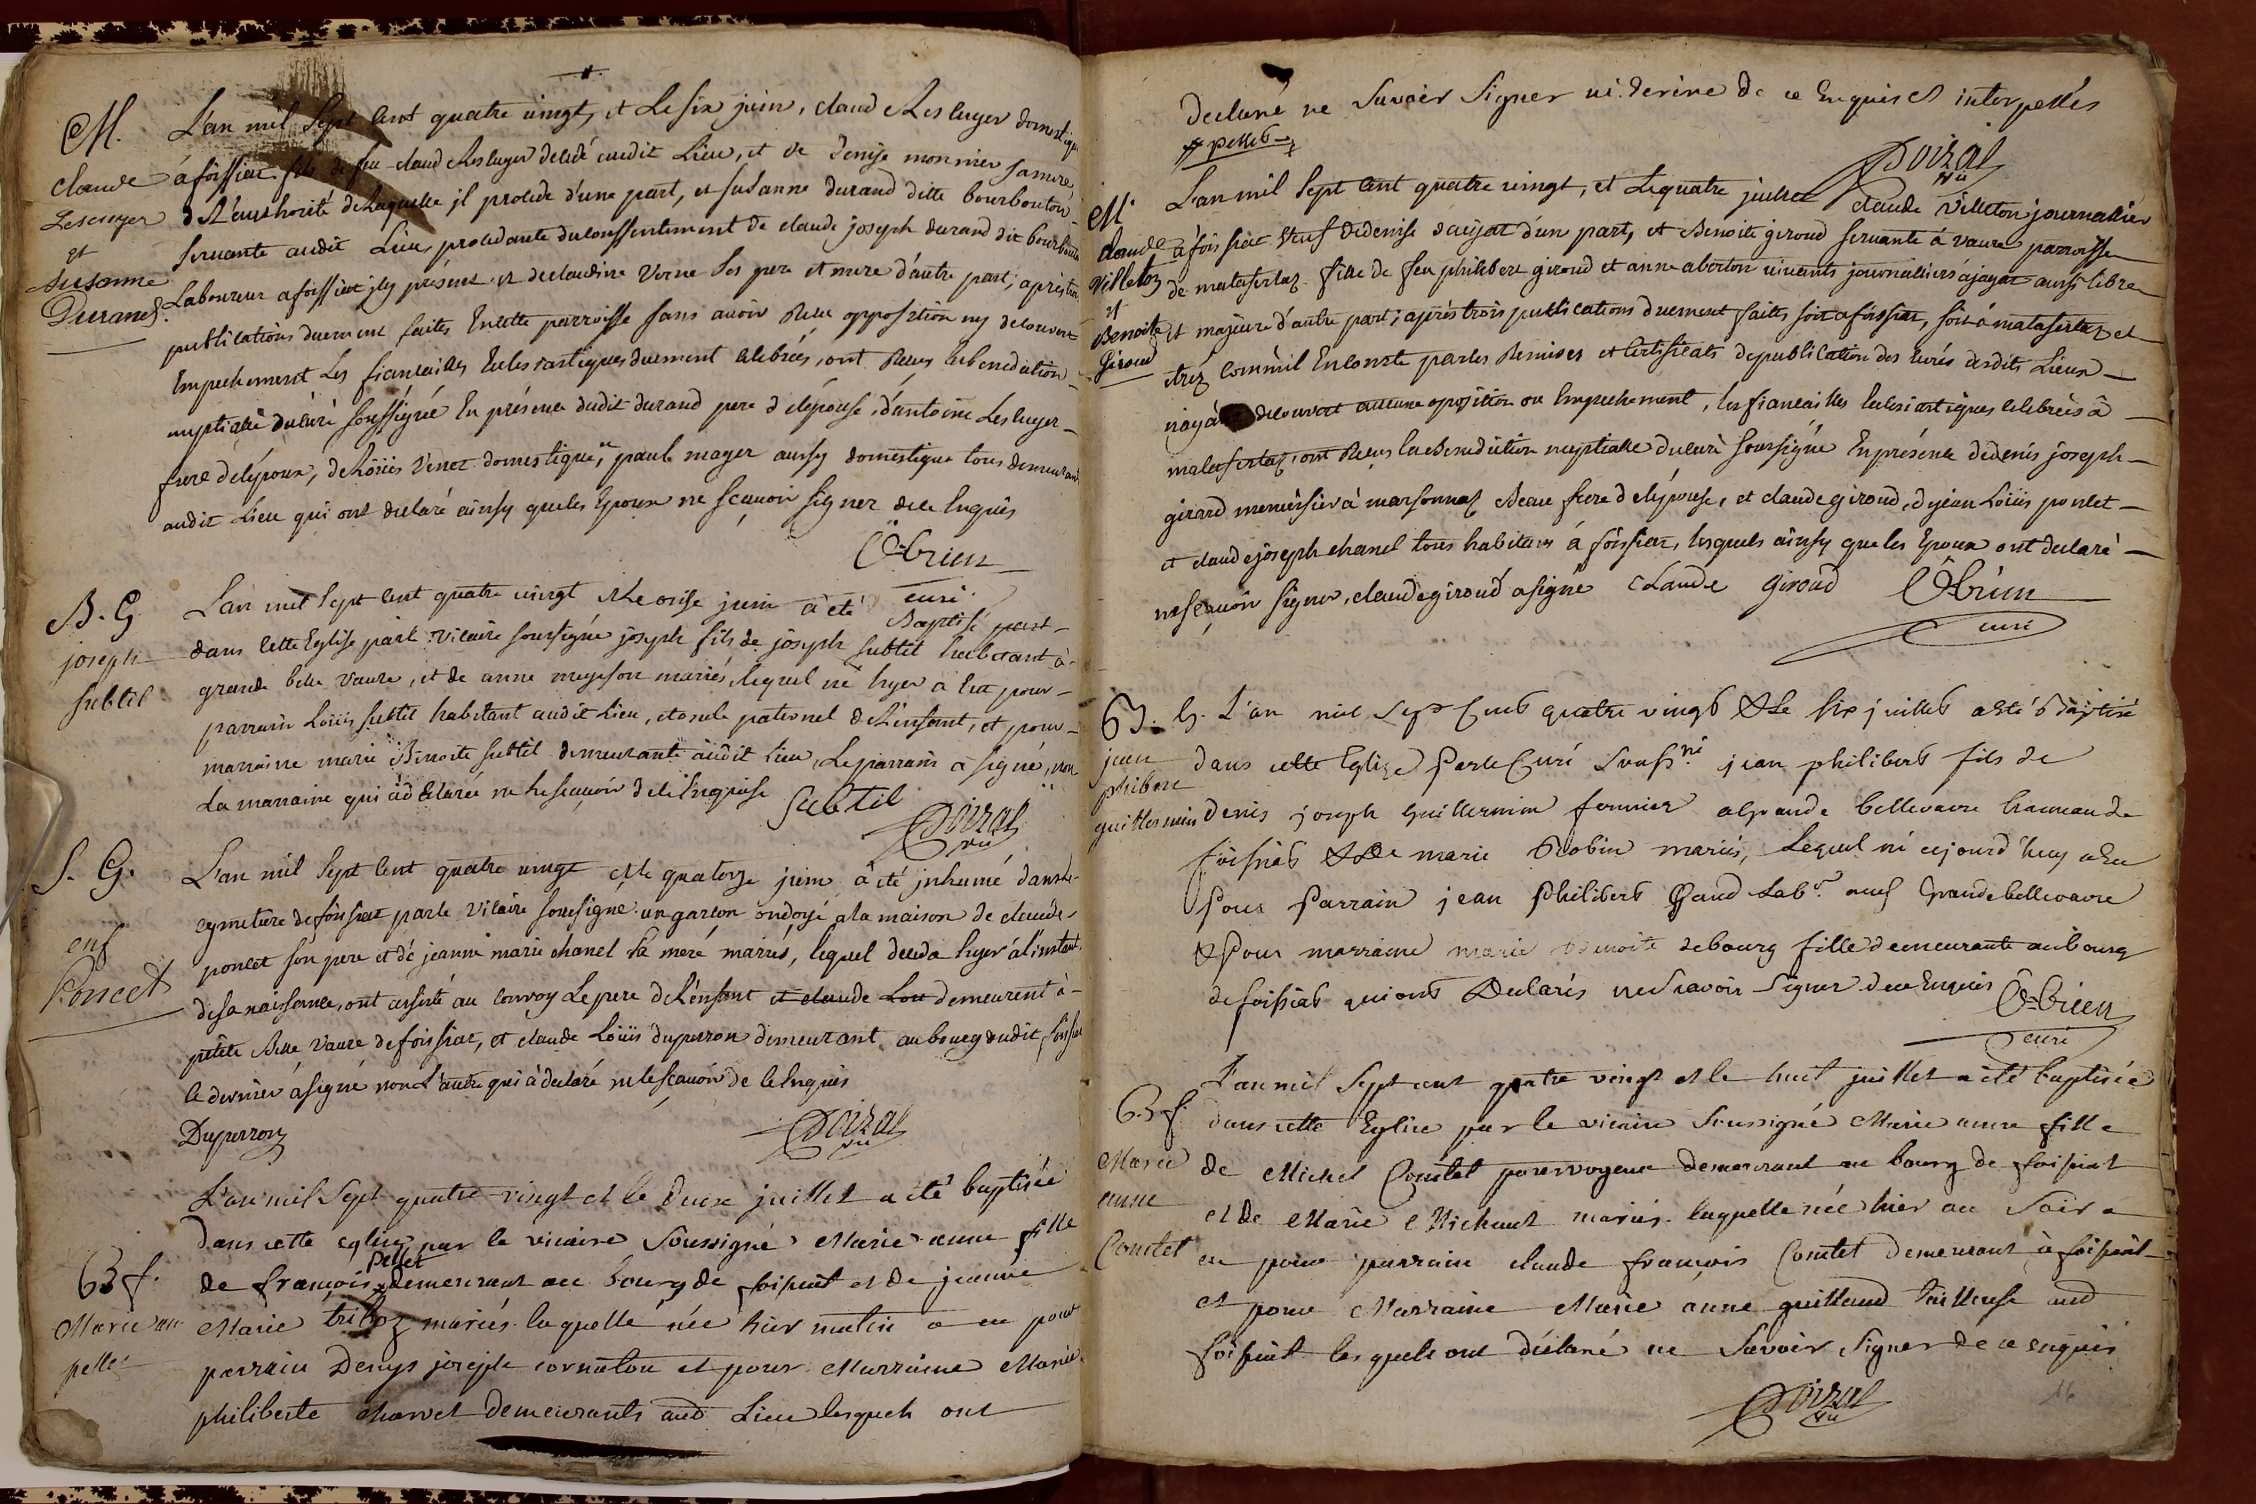 M.
Claude
Lescuyer
et
Susanne
Durand.
L'an mil Sept Cent quatre vingt, et Le six juin, claud Lescuyer domestique
à foissiat fils de feu claud Lescuyer décédé audit Lieu, et de denise monnier sa mere
de L'authorité de Laquelle il procede d'une part, et susanne durand ditte bourbouton
servante audit Lieu, procedante du consentement de claude joseph durand dit bourbouton
Laboureur a foissiat icy présent et de claudine Verne ses pere et mere d'autre part; après trois
publications duement faites En cette parroisse sans avoir Reçu opposition ny decouvert
Empechement Les fiancailles Eclesiastiques duement celebrées, ont Reçu la benediction
nuptiale du curé soussignée En présence dudit durand pere de l'épouse, d'antoine Lescuyer
frere de l'époux, de Loüis Venet domestique, paul mager aussy domestique tous demeurant
audit Lieu qui ont declaré ainsy que les Epoux ne sçavoir signer de ce Enquis
O-brien
curé
B. G
joseph
subtil
L'an mil Sept Cent quatre vingt et Le onse juin à été Baptisé
dans cette Eglise par le vicaire soussigné joseph fils de joseph subtil habitant à
grande belle vavre, et de anne mariés, lequel né hyer à Eut pour
parrain Loüis subtil habitant audit Lieu, oncle paternel de L'enfant, et pour
marraine marie Benoite subtil demeurante audit Lieu, Le parrain à signé, non
La marraine qui à déclarée ne le sçavoir de ce Enquise
Subtil
Doizal
vic
S. G.
enf
Poncet
L'an mil Sept Cent quatre vingt et le quatorze juin à été inhumé dans le
cymetiere de foissiat par le Vicaire soussigné un garcon ondoyé a la maison de claude
poncet son pere et de jeanne marie chanel sa mere mariés, lequel deceda hyer à l'instant
de sa naissance, ont assisté au convoy Le pere de L'enfant et claude Lou demeurent à
petite Belle Vavre de foissiat, et claude Loüis duperron demeurant au bourg dudit foissiat
le dernier à signé non L'autre qui à declaré ne le sçavoir de ce Enquis
Duperron
Doizal
vic
B f.
Marie an
pellet
L'an mil Sept quatre vingt et le Deux juillet a été baptisée
dans cette eglise par le vicaire Soussigné Marie anne fille
Pellet
de françois demeurant au bourg de foissiat et de jeanne
Marie triboz mariés laquelle née hier matin a eu pour
parrain Denys joseph cornaton et pour Marraine Marie
philiberte charvet demeurants aud Lieu lesquels ont
declaré ne Savoir Signer ni Ecrire de ce Enquis et interpellés
pellet
Doizal
vic
M.
claude
Villeton
et
Benoite
Giroud
L'an mil Sept Cent quatre vingt, et Le quatre juillet Claude Villeton journallier
à foissiat Veuf de denise d'un part, et Benoite giroud servante à vavre parroisse
de malafertaz fille de feu philibert giroud et anne aberton vivants journaliers à jayat aussi libre
et majeure d'autre part; après trois publications duement faites soit a foissiat, soit à malafertaz et
comm'il En conste par les Remises et Certificats de publication des Curés desdits Lieux
n'ayant decouvert aucune oposition ou Empechement, les fiancailles Eclesiastiques celebrées à
malafertaz, ont Reçus la Benediction nuptialle du curé soussigné En présence de denis joseph
girard menuisier à marsonnaz Beau frere de l'épouse, et claude giroud, de jean Loüis poncet
et claude joseph chanel tous habitans à foissiat, lesquels ainsy que les Epoux ont declaré
ne sçavoir signer, claude giroud a signé Claude giroud O-brien
curé
B. G.
jean
philibert
guillermin
L'an mil Sept Cent quatre vingt & Le six juillet a été Baptisé
dans cette Eglise Par le Curé Souss.né jean philibert fils de
denis joseph Guillermin fermier a Grande bellevavre hameau de
foissiat & De marie Robin mariés, Lequel né cejourd'huy a Eu
Pour Parrain jean Philibert Lab.r aud Grande bellevavre
& Pour marraine marie Benoite debourg fille demeurante au bourg
de foissiat qui ont Declarés ne Scavoir Signer de ce Enquis O-brien
curé
B f.
Marie
anne
Comtet
L'an mil Sept cent quatre vingt et le huit juillet a été baptisée
dans cette Eglise par le vicaire Soussigné Marie anne fille
de Michel Comtet pourvoyeur demeurant au bourg de foissiat
et de Marie Michaut mariés laquelle née hier au Soir a
eu pour parrain claude françois Comtet demeurant à foissiat
et pour Marraine Marie anne guillaud tailleuse aud
foissiat lesquels ont déclaré ne Savoir Signer de ce enquis
Doizal
vic
16